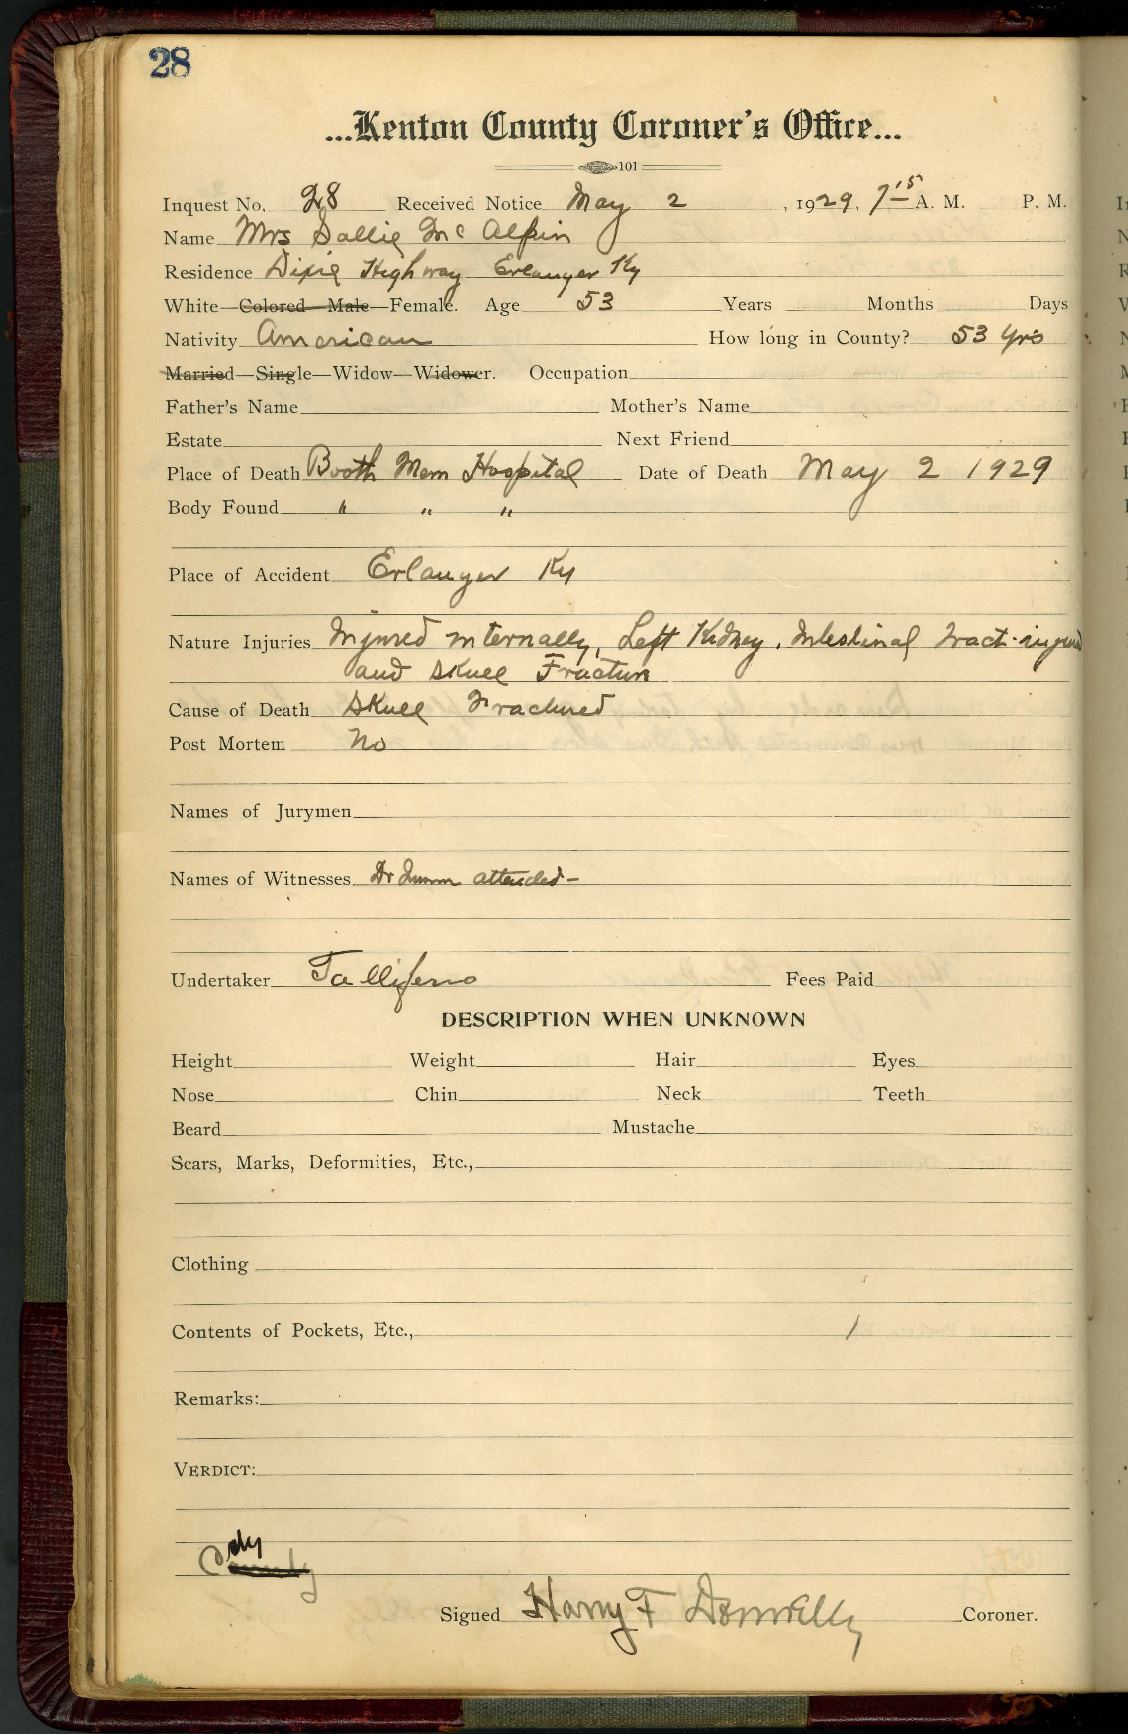 28
...Kenton County Coroner's Office...
101
Inquest No. 28 Received Notice May 2, 1929, 7 15 A. M. P. M.
Name Mrs Sallie Mc Alpin
Residence Dixie Highway Erlanger Ky
White—Colored—Male—Female. Age 53 Years Months Days
Nativity American How long in County? 53 Yrs
Married—Single—Widow—Widower. Occupation
Father's Name Mother's Name
Estate Next Friend
Place of Death Booth Mem Hospital Date of Death May 2 1929
Body Found " " "
Place of Accident Erlanger Ky
Nature Injuries Injured internally, Left Kidney, Intestinal Tract injured
and Skull Fracture
Cause of Death Skull Fractured
Post Mortem No
Names of Jurymen
Names of Witnesses Dr attended—
Undertaker Talliferro
Fees Paid
DESCRIPTION WHEN UNKNOWN
Height Weight Hair Eyes
Nose Chin Neck Teeth
Beard Mustache
Scars, Marks, Deformities, Etc.,
Clothing
Contents of Pockets, Etc.,
Remarks:
VERDICT:
County
Signed Harry F Donnelly Coroner.